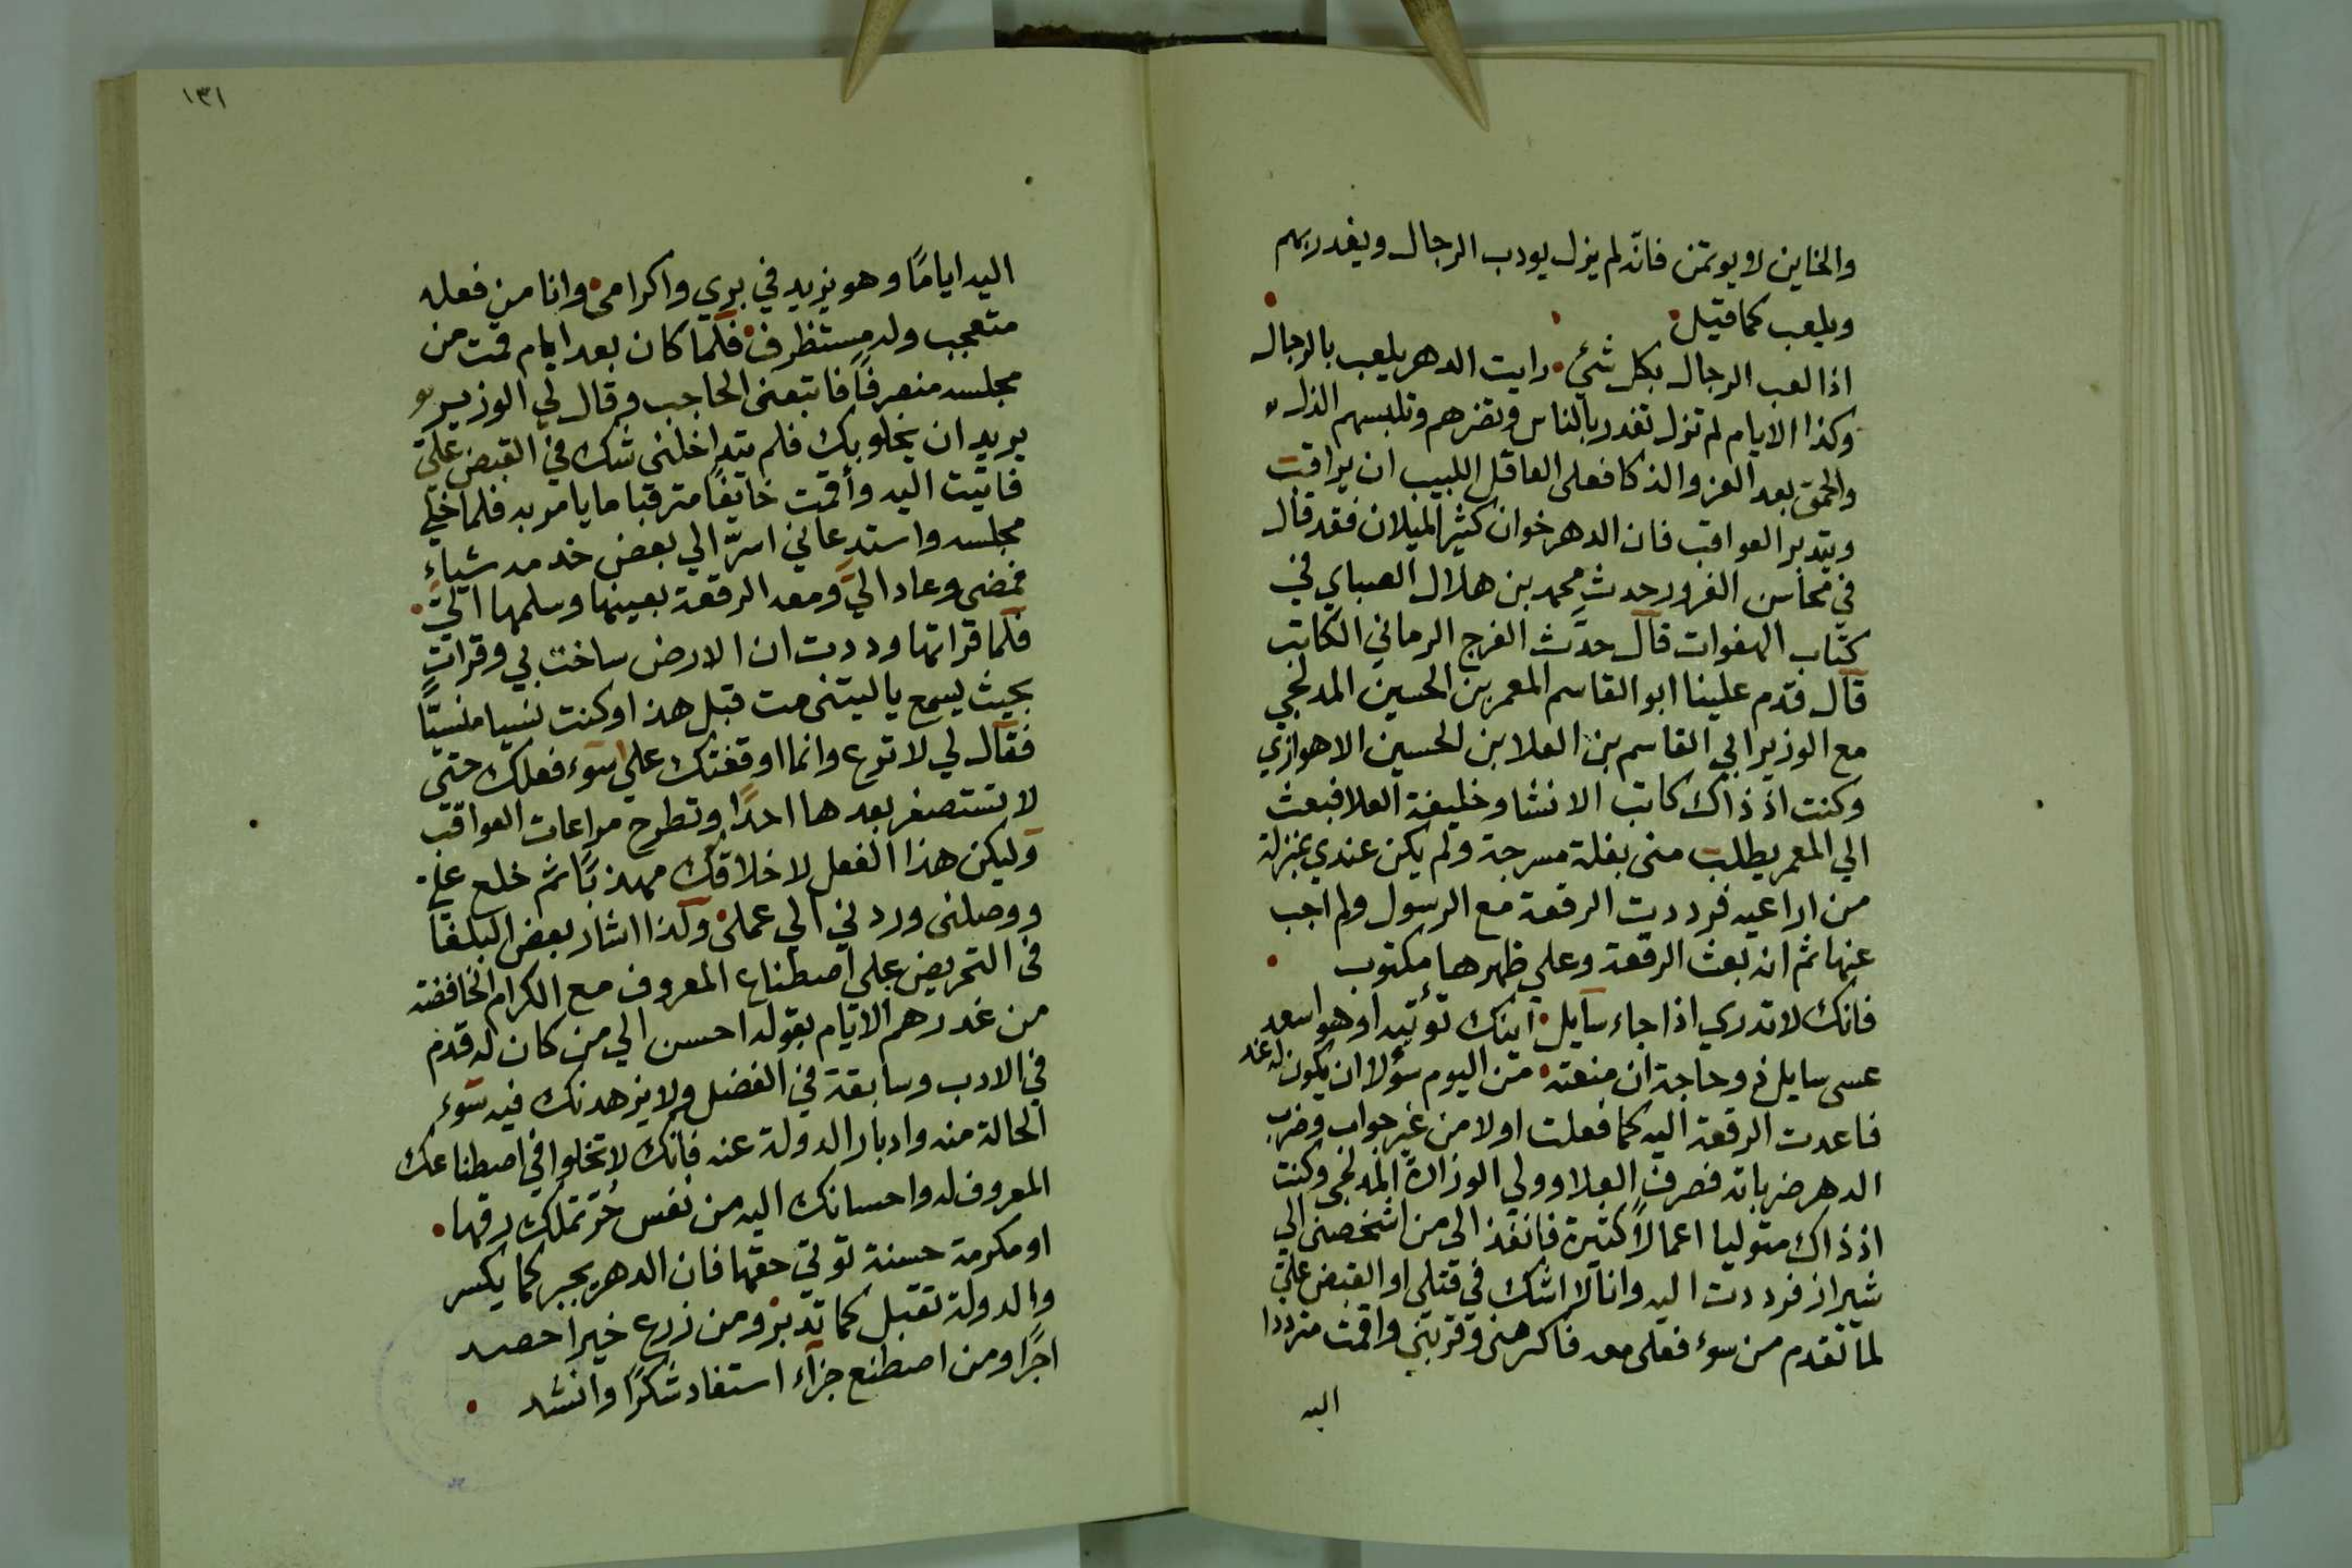 والخاين لا يوتمن فانّه لم يزل يودب الرجال ويغدر بهم
ويلعب كما قيل
اذا لعب الرجال بكل شئي رايت الدهر يلعب بالرجال
وكذا الايام لم تزل تغدر بالناس وتضرهم وتلبسهم الذل
والحمق بعد العز والذكا فعلى العاقل اللبيب ان يراقب
ويتدبر العواقب فان الدهر خوان كثير الميلان فقد قال
في محاسن الغرور حدث محمد بن هلال الصباي في
كتاب الهفوات قال حدّث الفرج الرماني الكاتب
قال قدم علينا ابو القاسم المعمر بن الحسين المدلجي
مع الوزير ابي القاسم بن العلا بن الحسين الاهوازي
وكنت اذ ذاك كاتب الانشا وخليفة العلا فبعث
الي المعمر يطلب مني بغلة مسرجة ولم يكن عندي بمنزلة
من اراعيه فرددت الرقعة مع الرسول ولم اجب
عنها ثم انه بعث الرقعة وعلي ظهرها مكتوب
فانك لا تدري اذا جاء سايل انك توتيه او هو اسعد
عسى سايل ذو حاجة ان منعته من اليوم سؤلا ان يكون له غد
فاعدت الرقعة اليه كما فعلت اولا من غير جواب وضرب
الدهر ضرباته فصرف العلا وولي الوزارة المدلجي وكنت
اذ ذاك متوليا اعمالاً كثيرة فانفذ الى من اشخصني الي
شيراز فرددت اليه وانا لا اشك في قتلي او القبض عليّ
لما تقدم من سوء فعلى معه فاكرمني وقربني واقمت مترددا
اليه
١٣١
اليه اياماً وهو يزيد في بري واكرامي وانا من فعله
متعجب وله مستظرف فلما كان بعد ايام قمت من
مجلسه منصرفاً فاتبعني الحاجب وقال لي الوزير
يريد ان يخلو بك فلم يتداخلني شك في القبض عليّ
فاتيت اليه وأقمت خايفاً مترقبا ما يامر به فلما خلي
مجلسه واستدعاني اسرّ الي بعض خدمه شياء
فمضى وعاد اليّ ومعه الرقعة بعينها وسلمها اليّ
فلما قراتها وددت ان الارض ساخت بي وقرات
بحيث يسمع يا ليتني مت قبل هذا وكنت نسيا منسيّا
فقال لي لا ترع وانما اوقفتك علي سوء فعلك حتى
لا تستصغر بعدها احداً وتطرح مراعات العواقب
وليكن هذا الفعل لاخلاقك مهذباً ثم خلع عليّ
ووصلني وردني الي عملي وكذا اشار بعض البلغا
في التحريض علي اصطناع المعروف مع الكرام الخافضة
من غدرهم الايام بقوله احسن الي من كان له قدم
في الادب وسابقة في الفضل ولا يزهدنك فيه سوء
الحالة منه وادبار الدولة عنه فانك لا تخلوا في اصطناعك
المعروف له واحسانك اليه من نفس حُرّ تملك رقها
او مكرمة حسنة توتي حقها فان الدهر يجبر كما يكسر
والدولة تقبل كما تدبر ومن زرع خيرا حصد
اجرًا ومن اصطنع جزاء استفاد شكرًا وانشد